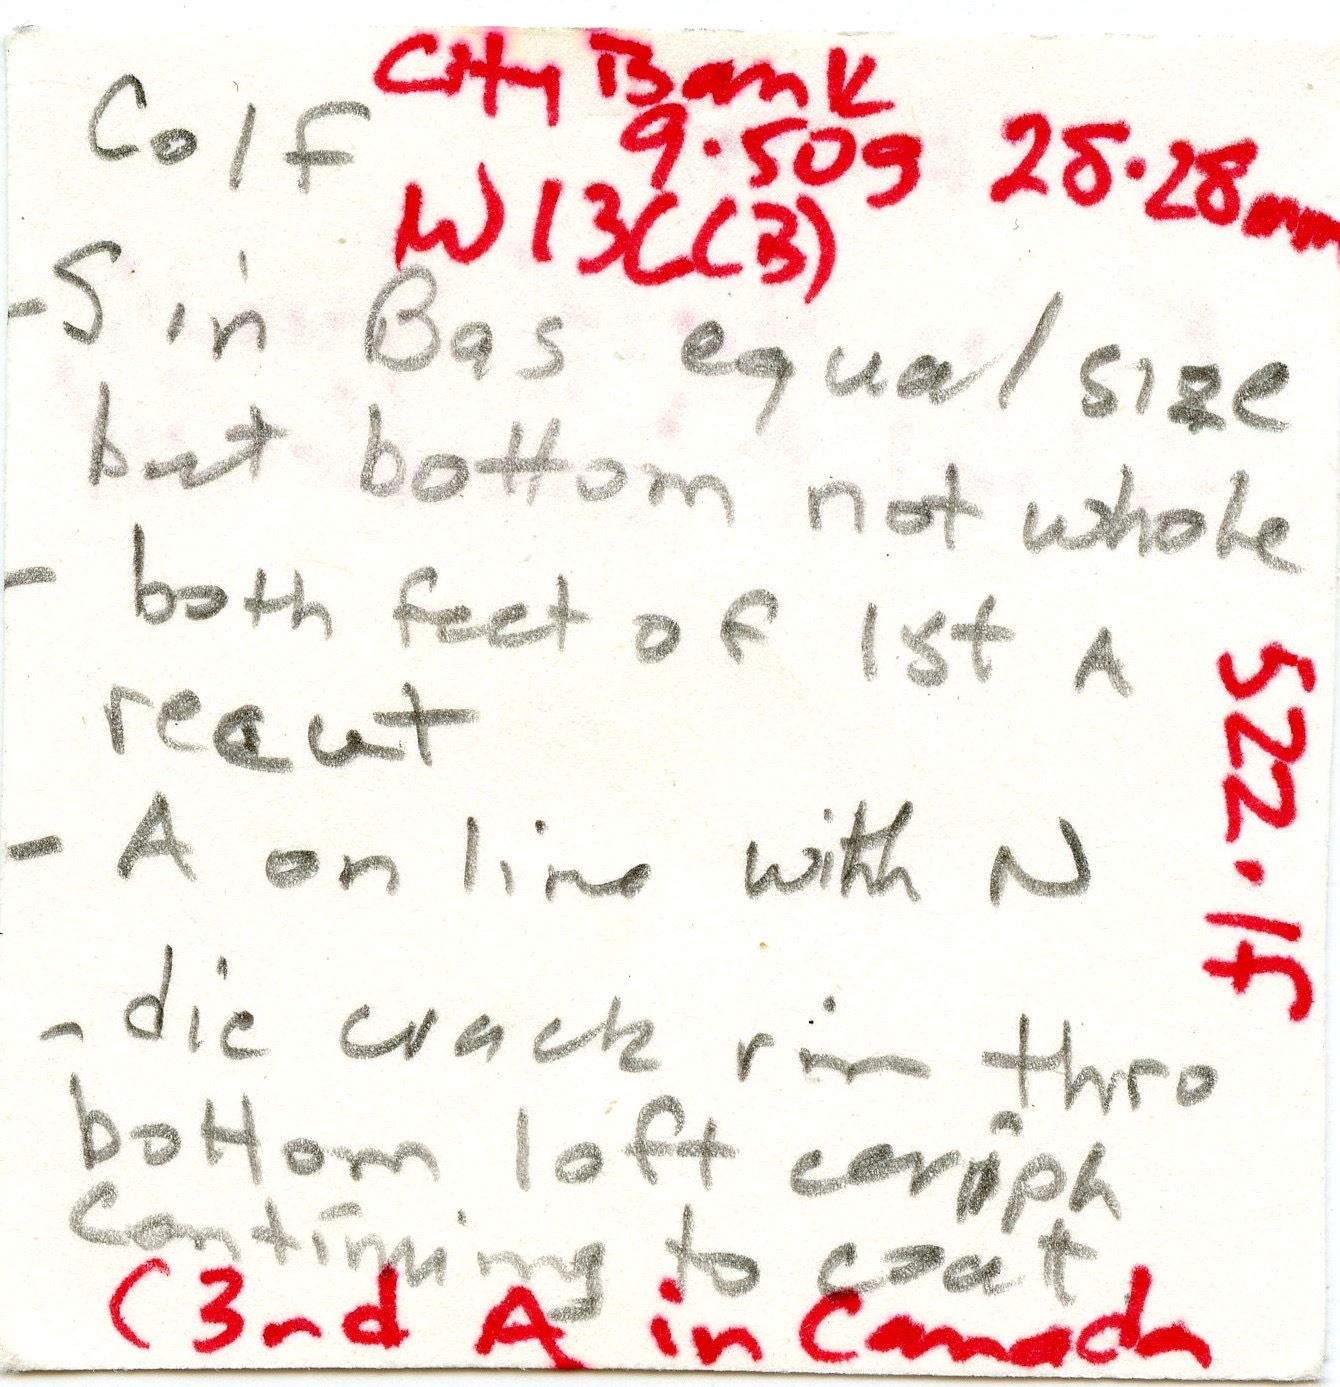 City Bank
Colf 9.50g 28.28mm
W13C(B)
- S in Bas equal size
but bottom not whole
- both feet of 1st A
recut
- A on line with N
- die crack rim thro
bottom left ceriph
continuing to coat
(3nd A in Canada
522.1f